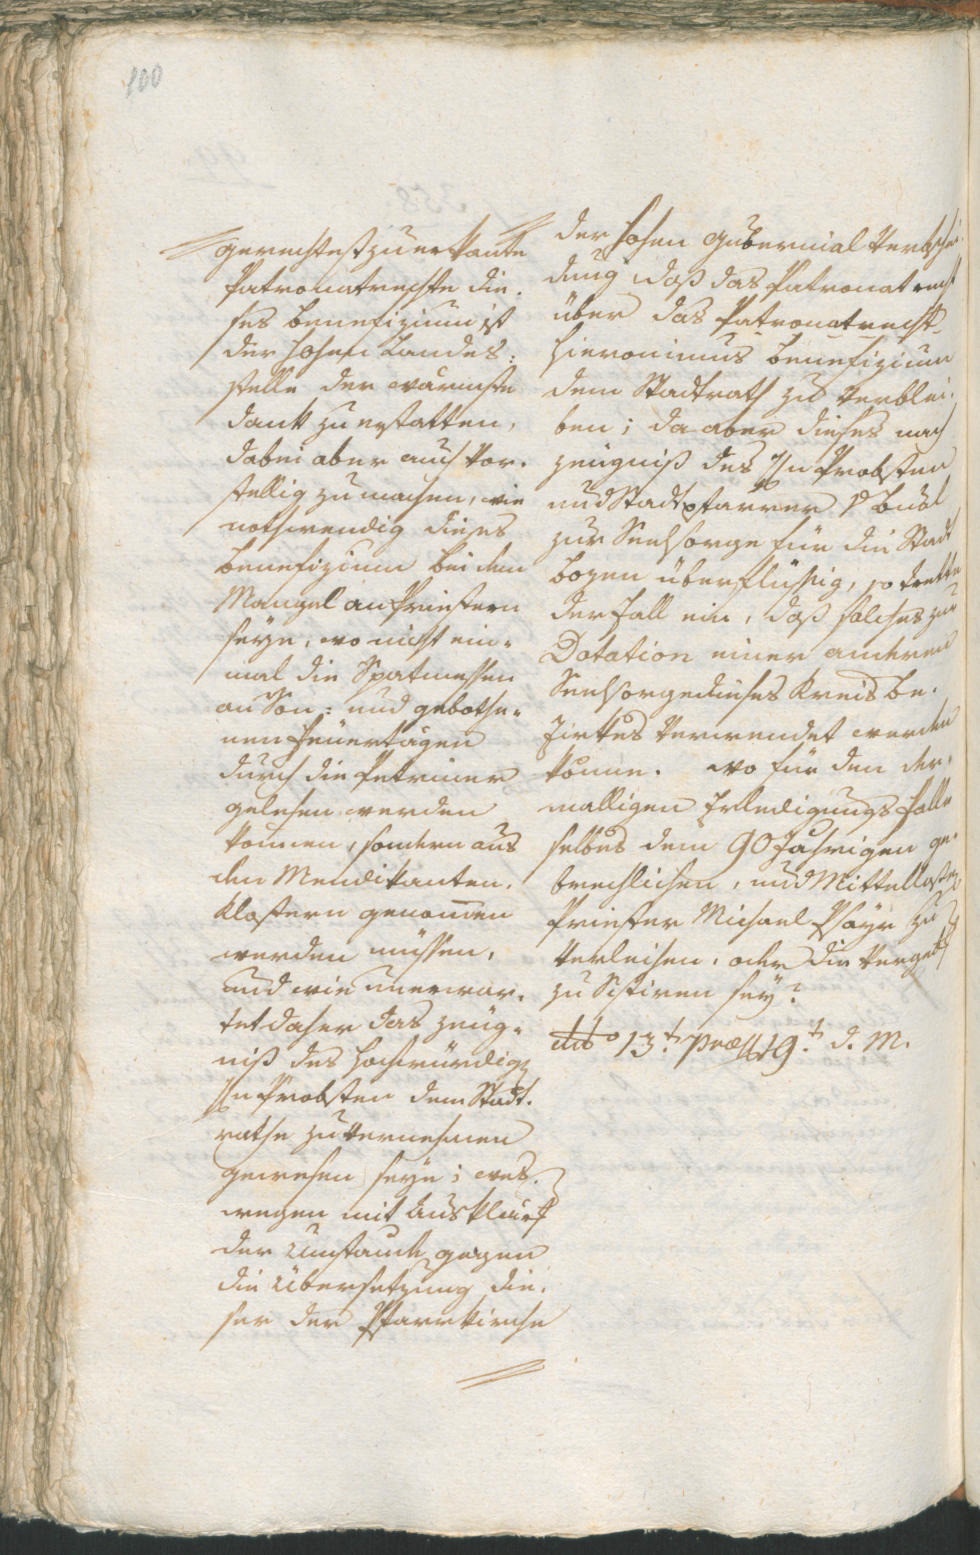 100
gerechtest zuerkante
Patronatrechte die-
ses Benefizium ist
der hohen Landes-
stelle der wärmste
Dank zu erstatten,
dabei aber auch vor-
stellig zu machen, wie
nothwendig dieses
Benefizium bei dem
Mangel an Priestern
seye, wo nicht ein-
mal die Spatmessen
an Son- und gebothe-
nen Feuertägen
durch die Petriner
gelesen werden
können, sondern aus
den Mendikanten-
Klostern genom̅en
werden müssen,
und wie unerwar-
tet daher das Zeug-
niß des hochwürdig
H Probsten dem Stadt-
rathe zu vernehmen
gewesen seye; wes-
wegen mit
der Umstände gegen
die Übersetzung die-
ser der Pfarrkirche
der hohen Gubernial Verbschei-
dung daß das Patronat recht
über das Patronatrecht
Hieronimus Benefizium
dem Stadtrath zu verblei-
ben; da aber dieses nach
Zeugniß des H Probsten
und Stadtpfarrer v Buol
zur Seelsorge für die Stadt
Bozen überflüssig, so trette
der Fall ein, daß solches zur
Dotation einer anderen
Seelsorge dieses Kreis be-
zirkes verwendet werden
könne. wo für den der-
malligen Erledigungs Falle
selbes dem 90 Jahrigen ge-
brechlichen, und Mittellosten
Priester Michael Payr zu
verleihen, oder die
zu Sistiren sey?
ddo 13t. præs 19t d. M.